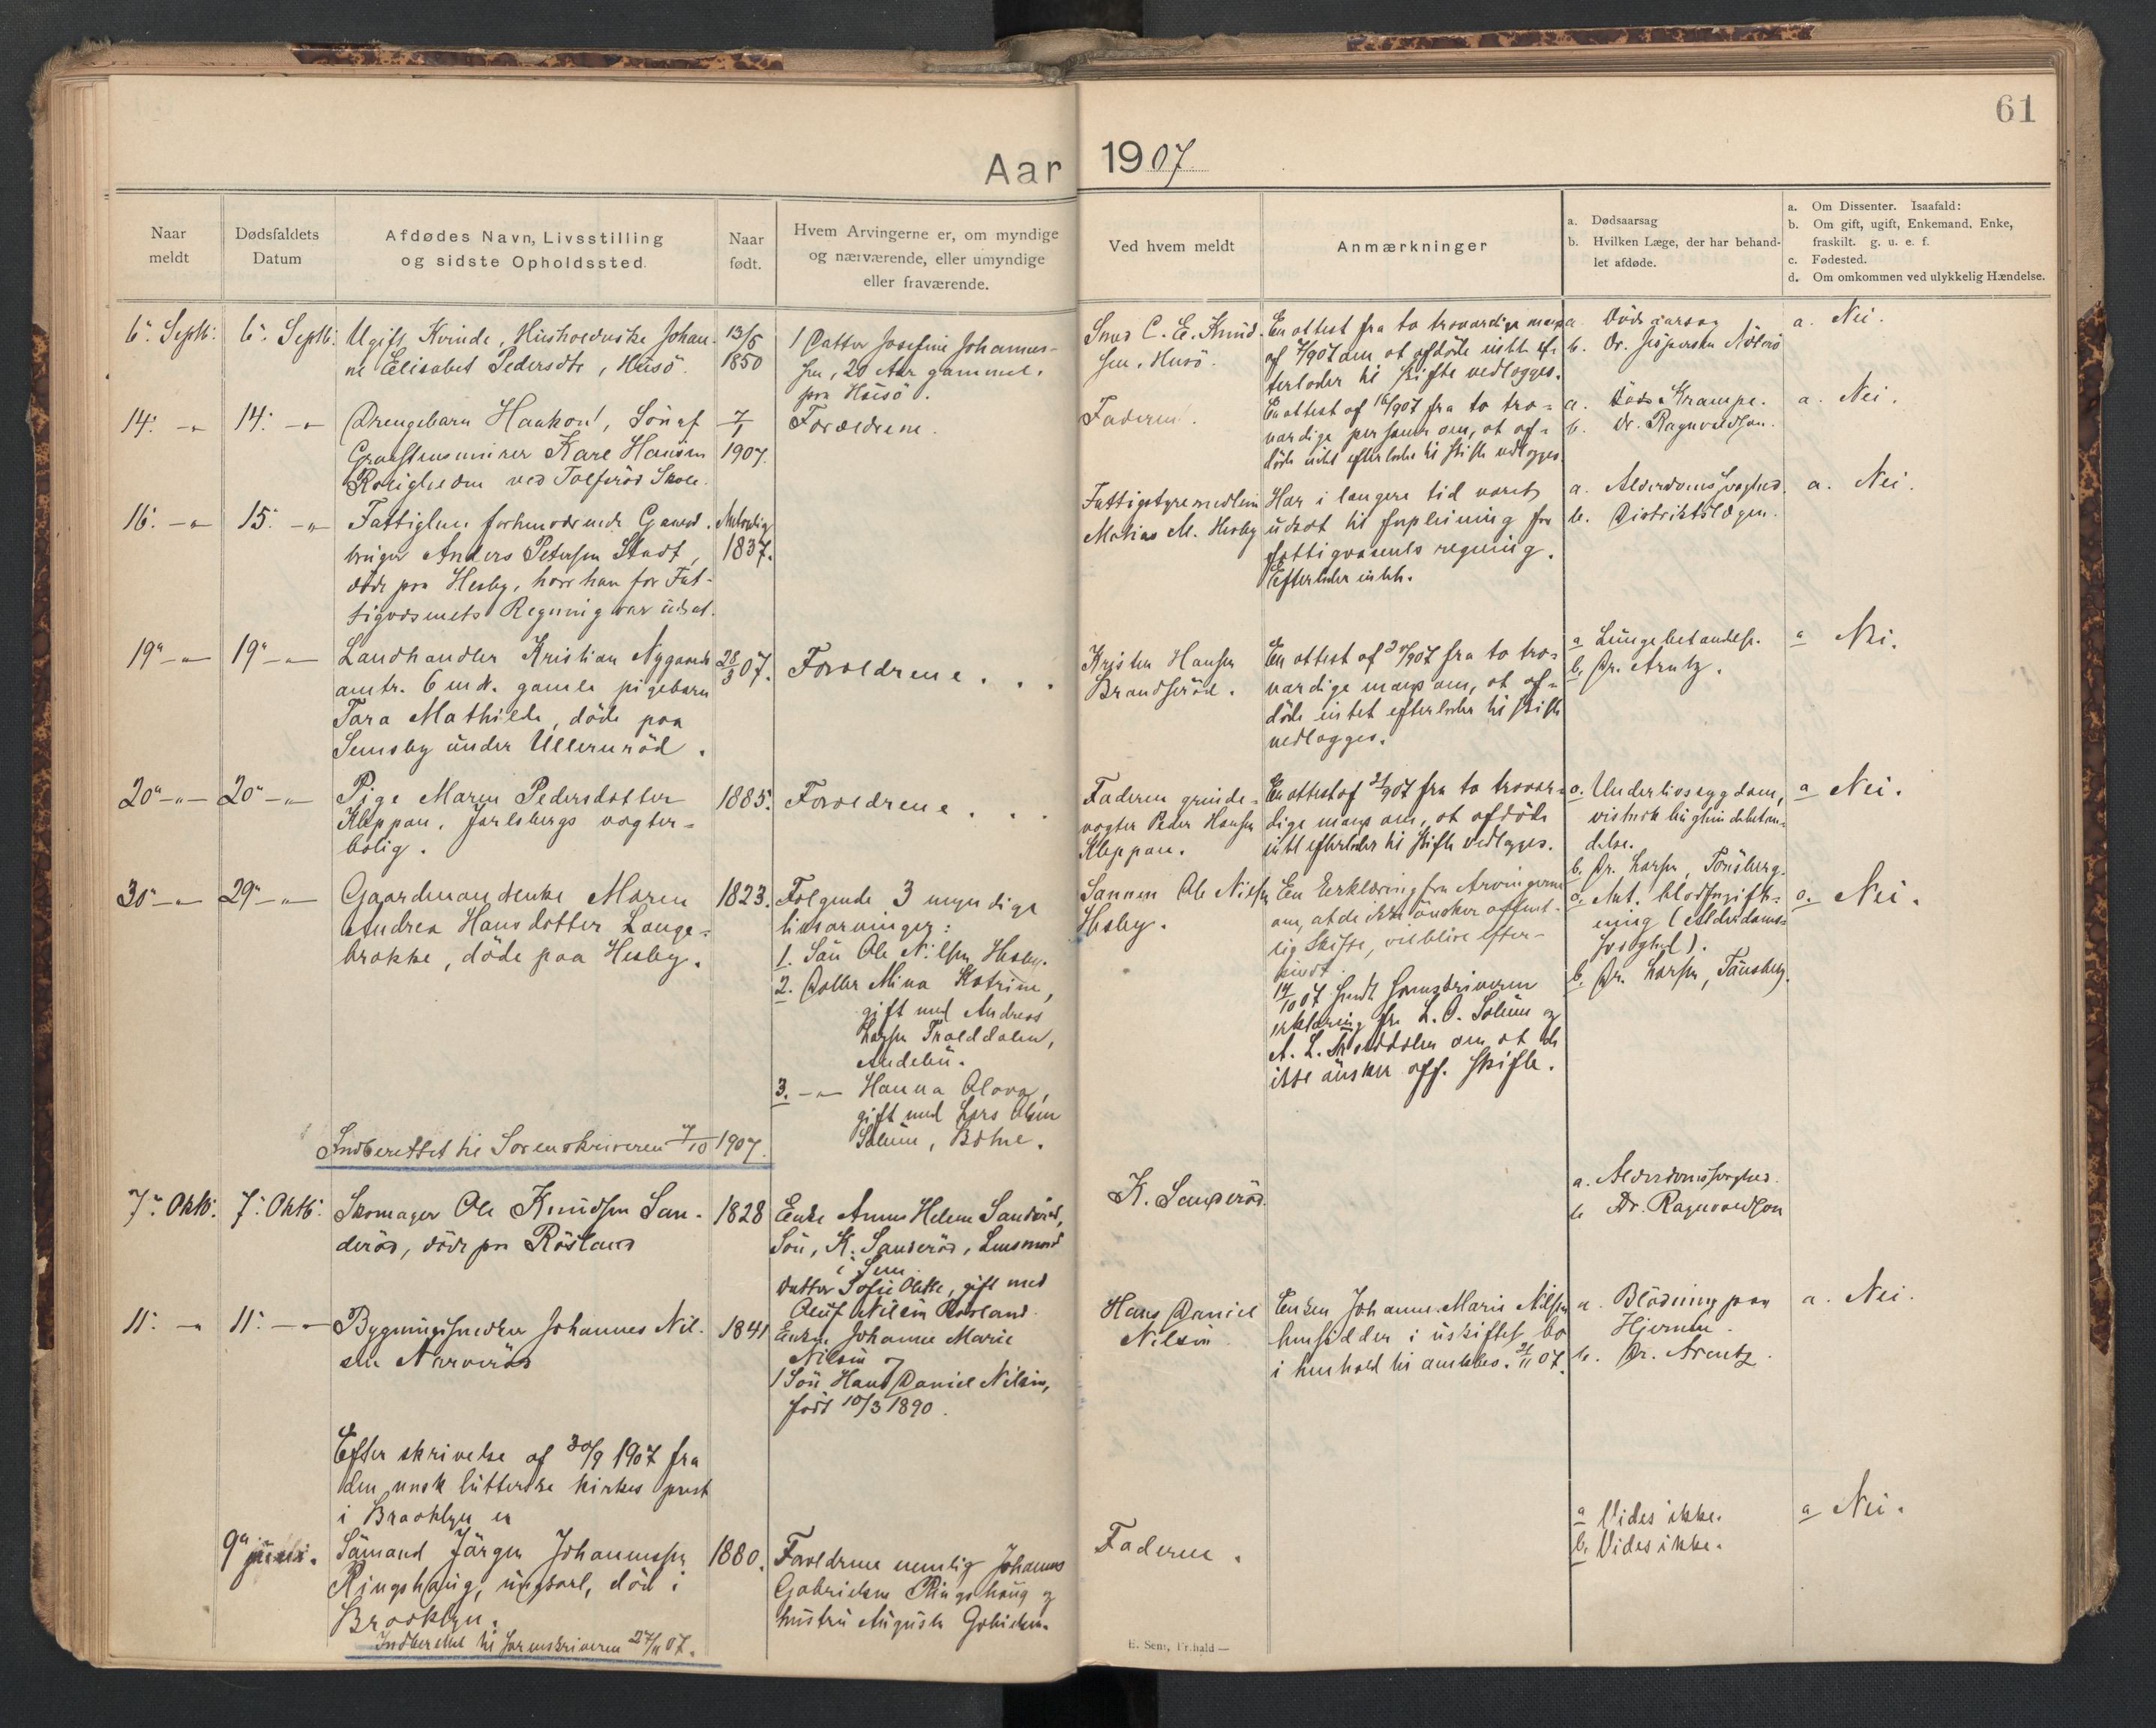 61
Aar 1907
Naar
meldt
Dødsfaldets
Datum
Afdødes Navn, Livsstilling
og sidste Opholdssted.
Naar
født.
Hvem Arvingerne er, om myndige
og nærværende, eller umyndige
eller fraværende.
Ved hvem meldt
Anmærkninger
a. Dødsaarsag
b. Hvilken Læge, der har behand-
let afdøde.
a. Om Dissenter. Isaafald:
b. Om gift, ugift, Enkemand, Enke,
fraskilt. g. u. e. f.
c. Fødested.
d. Om omkommen ved ulykkelig Hændelse.
6. Septb.
6. Septb.
Ugift Kvinde, Husholderske Johan-
ne Elisabet Pedersdtr, Husö.
13/5
1850
1 Datter Josefine Johannes-
sen, 20 Aar gammel,
paa Husö.
Smed C. E. Knud-
sen, Husö.
En attest fra to troværdige mænd
af 7/9 07 om at afdöde intet ef-
terlader til skifte vedlægges.
a. Dödsaarsag
b. Dr.
a. Nei.
14. -"-
14. -"-
Drengebarn Haakon, Sön af
Kare Hansen
ved Tolfsröd Skole.
7/1
1907.
Forældrene.
Faderen.
En attest af 16/9 07 fra to tro-
værdige personer om, at af-
döde intet efterlader til skifte vedlægges.
a. Krampe.
b. Dr. Ragnvaldsen.
a. Nei.
16. -"-
15. -"-
Fattiglem forhenværende Gaard-
bruger Anders Petersen Stadt,
döde paa Hesby, hvor han for Fat-
tigvæsenets Regning var udsat.
Antagelig
1837.
Fattigstyremedlem
Matias M. Hesby
Har i længere tid været
udsat til forpleining fra
fattigvæsenets regning.
Efterlader intet.
a. Alderdomssvaghed.
b. Distriktslægen.
a. Nei.
19" -"-
19" -"-
Landhandler Kristian Nygaards
omtr. 6 mdr. gamle pigebarn
Tara Mathilde, döde paa
Semsby under Ullernröd.
28/3 07.
Forældrene . . .
Kristen Hansen
Brandseröd.
En attest af 20/9 07 fra to tro-
værdige mænd om, at af-
döde intet efterlader til skifte
vedlægges.
a Lungebetændelse.
b. Dr. Arntz.
a Nei.
20" -"-
20" -"-
Pige Maren Pedersdatter
Kleppan, Jarlsbergs vogter-
bolig.
1885.
Forældrene . . .
Faderen grinde-
vogter Peder Hansen
Kleppan.
En attest af 21/9 07 fra to trovær-
dige mænd om, at afdöde
intet efterlader til skifte vedlægges.
a. Underlivssygdom,
delse.
b. Dr. Larsen, Tönsberg.
a Nei.
30" -"-
29" -"-
Gaardmandsenke Maren
Andrea Hansdatter Lange-
brække, döde paa Hesby.
1823.
Følgende 3 myndige
livsarvinger:
1. Sön Ole Nilsen, Hesby.
2. Datter Mina Katrine,
gift med Andreas
Larsen Trolddalen,
Andebu.
3. -"- Hanna Olava,
gift med Lars Olsen
Solum, Botne.
Sönnen Ole Nilsen
Hesby.
En Erklæring fra Arvingerne
om, at de ikke önsker offent-
lig Skifte, vil blive efter-
sendt.
14/10 07 sendt Sorenskriveren
erklæring fra L. O. Solum og
A. L. Trolddalen om at de
ikke önsker off. skifte.
a. Ant. blodforgift-
ning (Alderdoms-
svaghed).
b. Dr. Larsen, Tönsberg.
a. Nei.
Indberettet til Sorenskriveren 7/10 1907.
7. Oktb.
7. Oktb.
Skomager Ole Knudsen San-
deröd, döde paa Rösland
1828
Enke Anne Helene Sanderöd,
Sön, K. Sanderöd, Lensmand
i Sem
Datter Sofie Olette, gift med
Oluf Nilsen Rösland.
K. Sanderöd.
a. Alderdomssvaghed.
b. Dr. Ragnvaldsen
11. -"-
11. -"-
Bygningssnedker Johannes Nil-
sen Narveröd
1841
Enken Johanne Marie
Nilsen og
1 Sön Hans Daniel Nilsen,
född 10/3 1890.
Hans Daniel
Nilsen
Enken Johanne Marie Nilsen
hensidder i uskiftet bo
i henhold til 21/11 07.
a. Blödning paa
Hjernen.
b. Dr. Arentz.
a. Nei.
Efter skrivelse af 30/9 1907 fra
den norsk lutterske kirkes prest
i Brooklyn er
9" juni.
Sömand Jörgen Johannessen
Ringshaug, ungkarl, död i
Brooklyn.
1880.
Forældrene nemlig Johannes
Gabrielsen Ringshaug og
hustru Augusta Gabrielsen.
Faderen.
a Vides ikke.
b. Vides ikke.
a Nei.
Indberettet til Sorenskriveren 27/11 07.
E. Sem, Fr.hald —